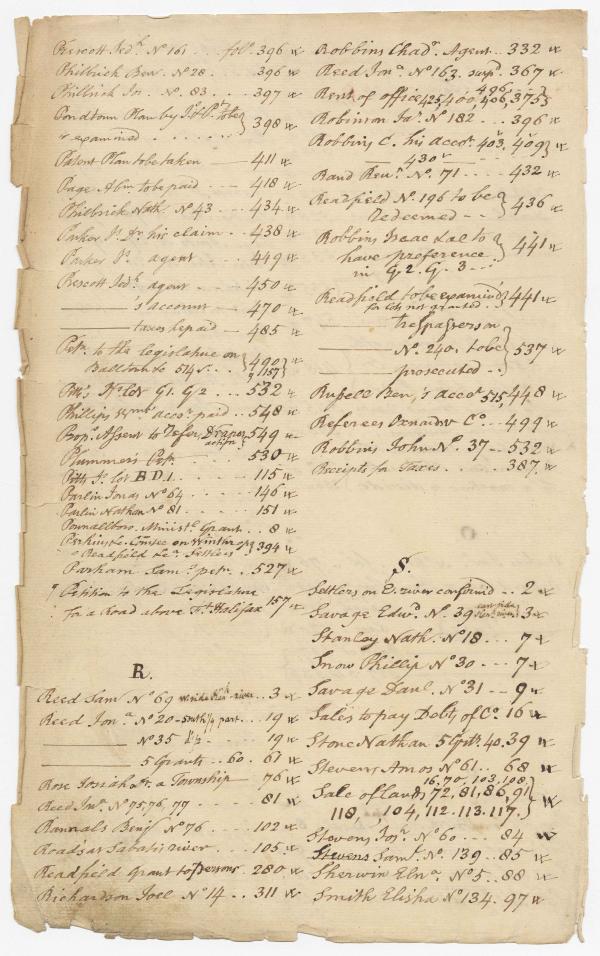 Prescott Jed.h No 161 . . . . fol.o 396
Philbrick Ben. No 28 . . . . 396
Philbrick Jn. No. 83 . . . 397
Pondtown Plan by to be
examined . . . . . . 398
Patent Plan to be taken — 411
Page Abm. to be paid . . — 418
Philbrick Nath. No 43 . . . 434
Parker Js. Dr. his claim . . 438
Parker Js. agent . . . 449
Prescott Jed.h agent . . . 450
———— 's account — 470
———— taxes be paid — 485
Petn. to the legislature on 490
Balltown to 545 . . . & 157
Pitts No. Lot G1. G.2 . . 532
Phillips Wm.s acco.t paid . . 548
Prop.s Assent to Defer Draper action 549
Plummer's Petn. . . . . . 530
Pitts Js. lot B D 1. . . . . 115
Parlin Jonas No 64 . . . . . 146
Parlin Nathan No 81 . . . . 151
Pownallboro. Minist.l Grant . . 8
Perkins on Winthrop
& Readfield Settlers 394
Parham Sam.l petn. . . 527
Petition to the Legislature
for a Road above Ft. Halifax 157
R.
Reed Sam.l No 69 west side Ken.k river . . 3
Reed Jon.a No 20 - south 1/2 part . . . 19
———— No 35 1/2 . . . . 19
———— 5 Grants . . 60 . 61
Rose Josiah a Township — 76
Reed Jn.o No 75, 76, 77 . . . . 81
Rannals Benj. No 76 . . . . 102
Roads at Sabatis River . . . 105
Readfield Grant to Persons 280
Richardson Joel No 14 . . . 311
Robbins Chad.r Agent . . 332
Reed Jon.a No 163. surp.s 367
Rent of office 425, 400, 496, 406, 375
Robinson Ja.s No 182 . . . 396
Robbins C. his acco.t 403, 409
———— 430
Rand Ren. No. 71 . . . 432
Readfield No. 196 to be
Redeemed . . 436
Robbins Isaac &al to
have preference 441
in G. 2. G. 3 . . .
Readfield to be examined 441
for lots not granted
——— trespassers on
——— No. 240, to be 537
——— prosecuted . .
Russell Ben,'s acco.t 515, 448
Referees Oxnard & Co. . . 499
Robbins John No. 37 . . 532
Receipts for Taxes . . . . 387.
S.
Settlers on E. river confirm'd . . 2
Savage Edw.d No. 39 east side Ken.k river 3
Stanley Nath. No 18 . . . 7
Snow Phillip No 30 . . . 7
Savage Dan.l No 31 . . 9
Sales to pay Debts of Co. 16
Stone Nathan 5 Grts. 40. 39
Stevens Amos No 61 . . . 68
16, 70, 103, 108,
Sale of Lands, 72, 81, 86, 91
118, — 104, 112. 113. 117.
Stevens Jos.h No 60 . . . 84
Stevens Sam.l No. 139 . . 85
Sherwin Eln.n No 5 . . 88
Smith Elisha No 134. 97